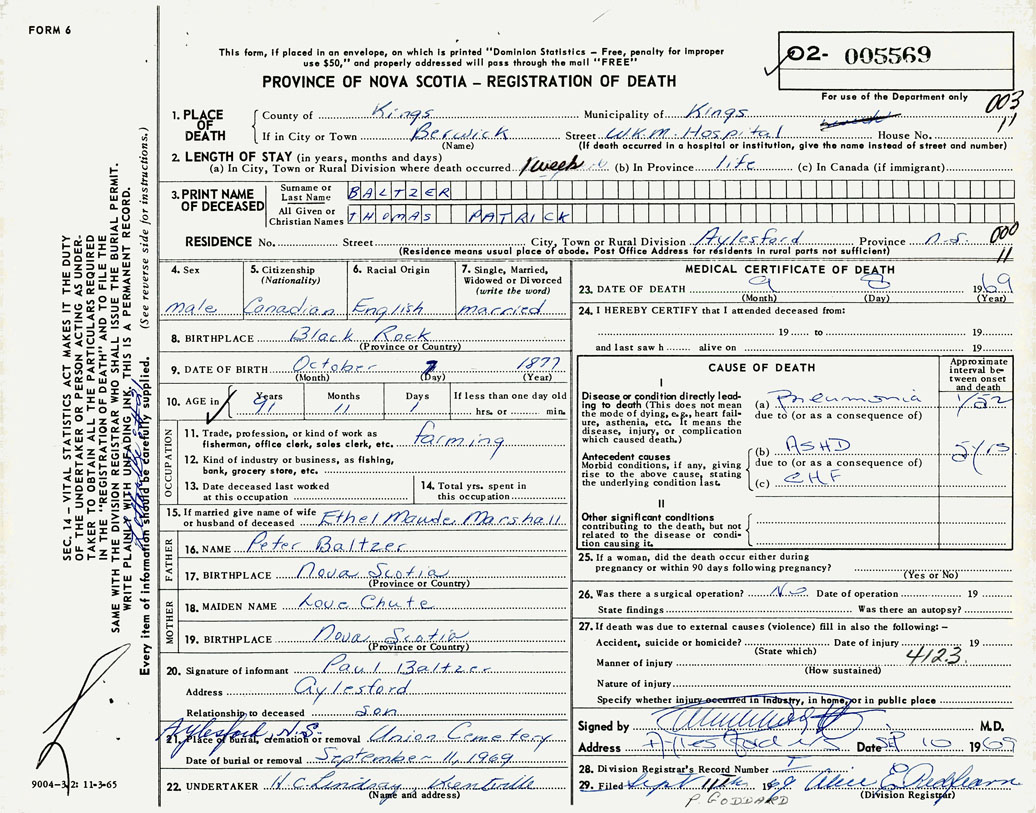 FORM 6
This form, if placed in an envelope, on which is printed "Dominion Statistics – Free, penalty for improper
use $50," and properly addressed will pass through the mail "FREE"
PROVINCE OF NOVA SCOTIA – REGISTRATION OF DEATH
02- 005569
For use of the Department only
003
11
1. PLACE OF DEATH
County of Kings Municipality of Kings
If in City or Town Berwick Street W.K.M. Hospital House No.
(Name) (If death occurred in a hospital or institution, give the name instead of street and number)
2. LENGTH OF STAY (in years, months and days)
(a) In City, Town or Rural Division where death occurred 1 week (b) In Province life (c) In Canada (if immigrant)
3. PRINT NAME OF DECEASED
Surname or Last Name BALTZER
All Given or Christian Names THOMAS PATRICK
RESIDENCE No. Street City, Town or Rural Division Aylesford Province N.S.
000
11
(Residence means usual place of abode. Post Office Address for residents in rural parts not sufficient)
4. Sex
male
5. Citizenship
(Nationality)
Canadian
6. Racial Origin
English
7. Single, Married,
Widowed or Divorced
(write the word)
married
8. BIRTHPLACE Black Rock
(Province or Country)
9. DATE OF BIRTH October 7 1877
(Month) (Day) (Year)
10. AGE in
Years Months Days If less than one day old
91 11 1 hrs. or min.
OCCUPATION
11. Trade, profession, or kind of work as
fisherman, office clerk, sales clerk, etc. farming
12. Kind of industry or business, as fishing,
bank, grocery store, etc.
13. Date deceased last worked
at this occupation
14. Total yrs. spent in
this occupation
15. If married give name of wife
or husband of deceased Ethel Maude Marshall
FATHER
16. NAME Peter Baltzer
17. BIRTHPLACE Nova Scotia
(Province or Country)
MOTHER
18. MAIDEN NAME Love Chute
19. BIRTHPLACE Nova Scotia
(Province or Country)
20. Signature of informant Paul Baltzer
Address Aylesford
Relationship to deceased son
Aylesford, N.S.
21. Place of burial, cremation or removal Union Cemetery
Date of burial or removal September 11, 1969
22. UNDERTAKER H.C. Lindsay Kentville
(Name and address)
MEDICAL CERTIFICATE OF DEATH
23. DATE OF DEATH 9 8 1969
(Month) (Day) (Year)
24. I HEREBY CERTIFY that I attended deceased from:
19 to 19
and last saw h alive on 19
CAUSE OF DEATH
Approximate
interval be-
tween onset
and death
I
Disease or condition directly lead-
ing to death (This does not mean
the mode of dying, e.g., heart fail-
ure, asthenia, etc. It means the
disease, injury, or complication
which caused death.)
(a) Pneumonia 1/52
due to (or as a consequence of)
Antecedent causes
Morbid conditions, if any, giving
rise to the above cause, stating
the underlying condition last.
(b) ASHD
due to (or as a consequence of)
(c) CHF
II
Other significant conditions
contributing to the death, but not
related to the disease or condi-
tion causing it.
25. If a woman, did the death occur either during
pregnancy or within 90 days following pregnancy?
(Yes or No)
26. Was there a surgical operation? No Date of operation 19
State findings Was there an autopsy?
27. If death was due to external causes (violence) fill in also the following: –
Accident, suicide or homicide? Date of injury 19
(State which)
Manner of injury 4123
(How sustained)
Nature of injury
Specify whether injury occurred in industry, in home, or in public place
Signed by M.D.
Address Aylesford NS Date SEP 10 1969
28. Division Registrar's Record Number
29. Filed Sept 11th 1969 Alice E.
P GODDARD (Division Registrar)
SEC. 14 – VITAL STATISTICS ACT MAKES IT THE DUTY
OF THE UNDERTAKER OR PERSON ACTING AS UNDER-
TAKER TO OBTAIN ALL THE PARTICULARS REQUIRED
IN THE "REGISTRATION OF DEATH" AND TO FILE THE
SAME WITH THE DIVISION REGISTRAR WHO SHALL ISSUE THE BURIAL PERMIT.
WRITE PLAINLY WITH UNFADING INK. THIS IS A PERMANENT RECORD.
Every item of information should be carefully supplied. (See reverse side for instructions.)
9004-3/2: 11-3-65